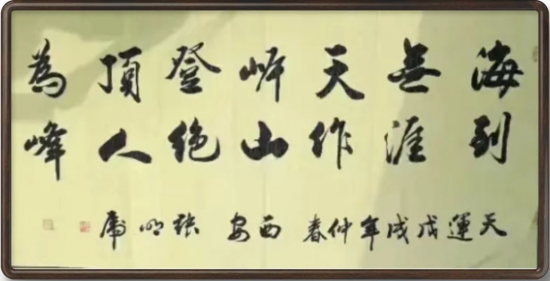 海到
無涯
天作
岸山
登绝
頂人
為峰
天運戊戌年仲春西安張